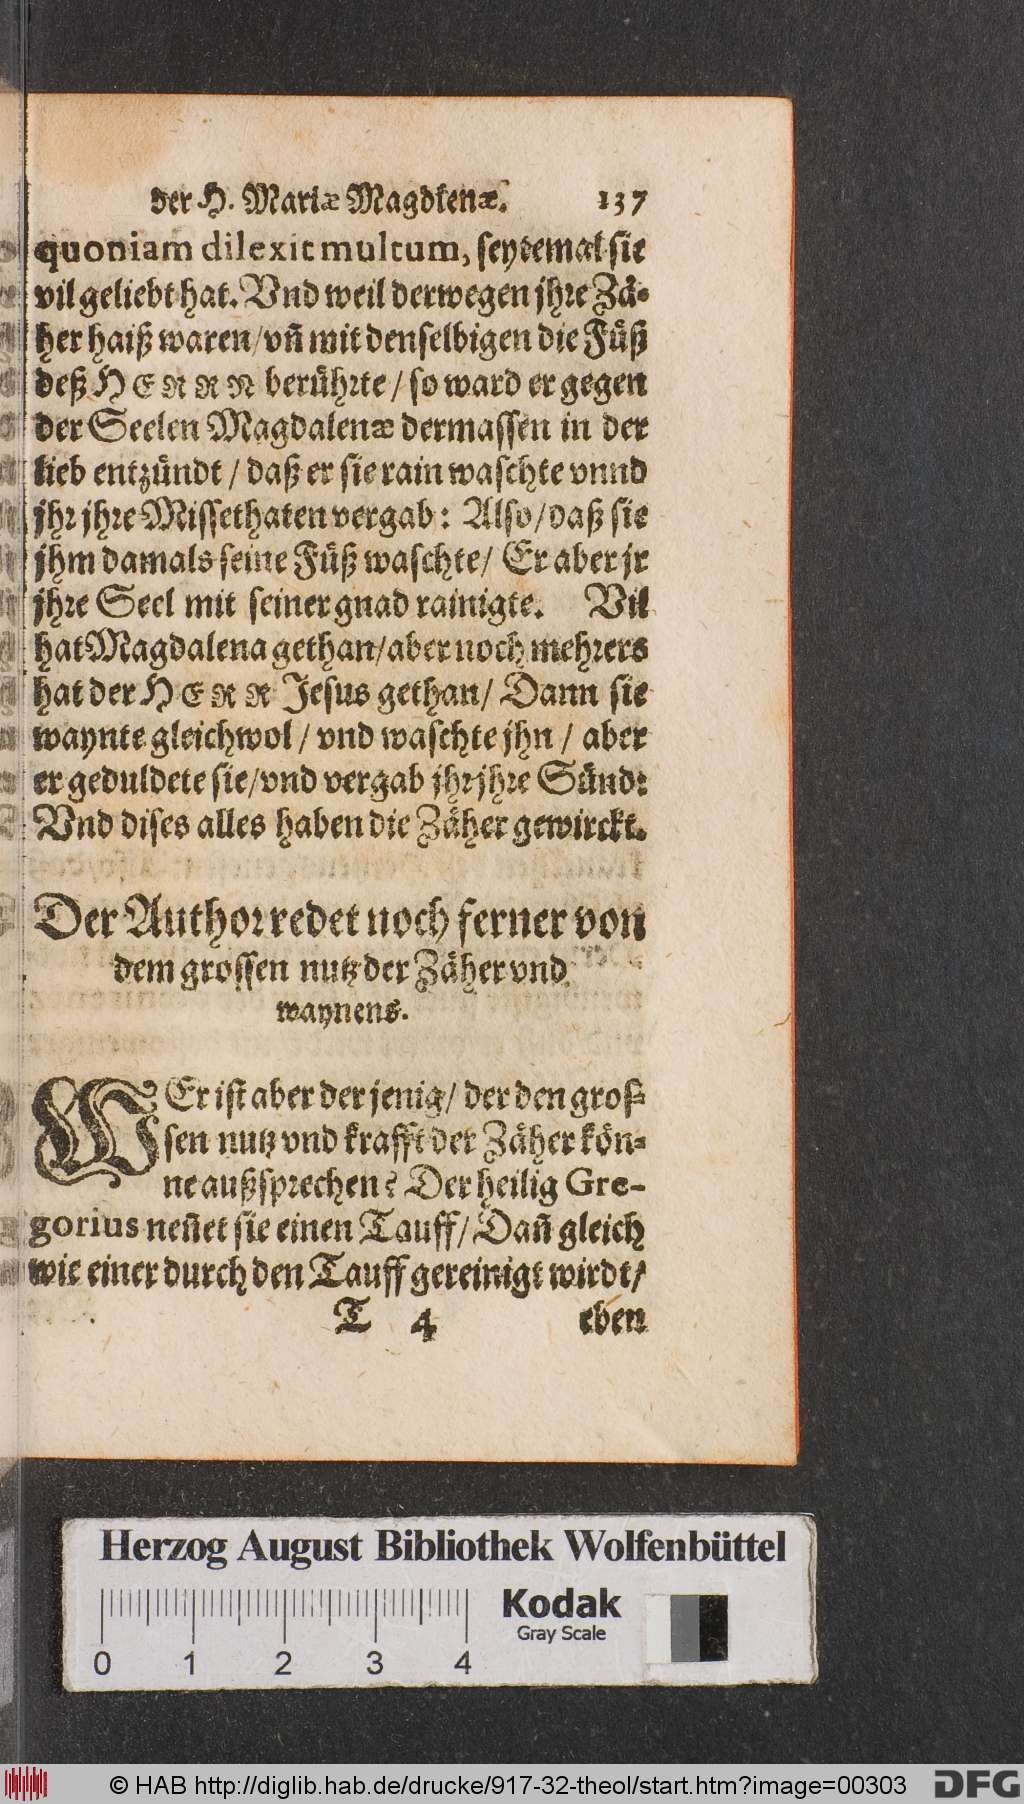 der H. Mariæ Magdlenæ. 137
quoniam dilexit multum, seytemal sie
vil geliebt hat. Vnd weil derwegen jhre Zä-
her haiß waren/ vñ mit denselbigen die Füß
deß HERRN berührte / so ward er gegen
der Seelen Magdalenæ dermassen in der
lieb entzündt / daß er sie rain waschte vnnd
jhr jhre Missethaten vergab: Also/ daß sie
jhm damals seine Füß waschte/ Er aber jr
jhre Seel mit seiner gnad rainigte. Vil
hat Magdalena gethan/ aber noch mehrers
hat der HERR Jesus gethan/ Dann sie
waynte gleichwol / vnd waschte jhn / aber
er geduldete sie/ vnd vergab jhr jhre Sünd:
Vnd dises alles haben die Zäher gewirckt.
Der Author redet noch ferner von
dem grossen nutz der Zäher vnd
waynens.
WEr ist aber der jenig/ der den gros-
sen nutz vnd krafft der Zäher kön-
ne außsprechen? Der heilig Gre-
gorius neñet sie einen Tauff/ Dañ gleich
wie einer durch den Tauff gereinigt wirdt/
T 4 eben
Herzog August Bibliothek Wolfenbüttel
Kodak
Gray Scale
0 1 2 3 4
© HAB http://diglib.hab.de/drucke/917-32-theol/start.htm?image=00303
DFG